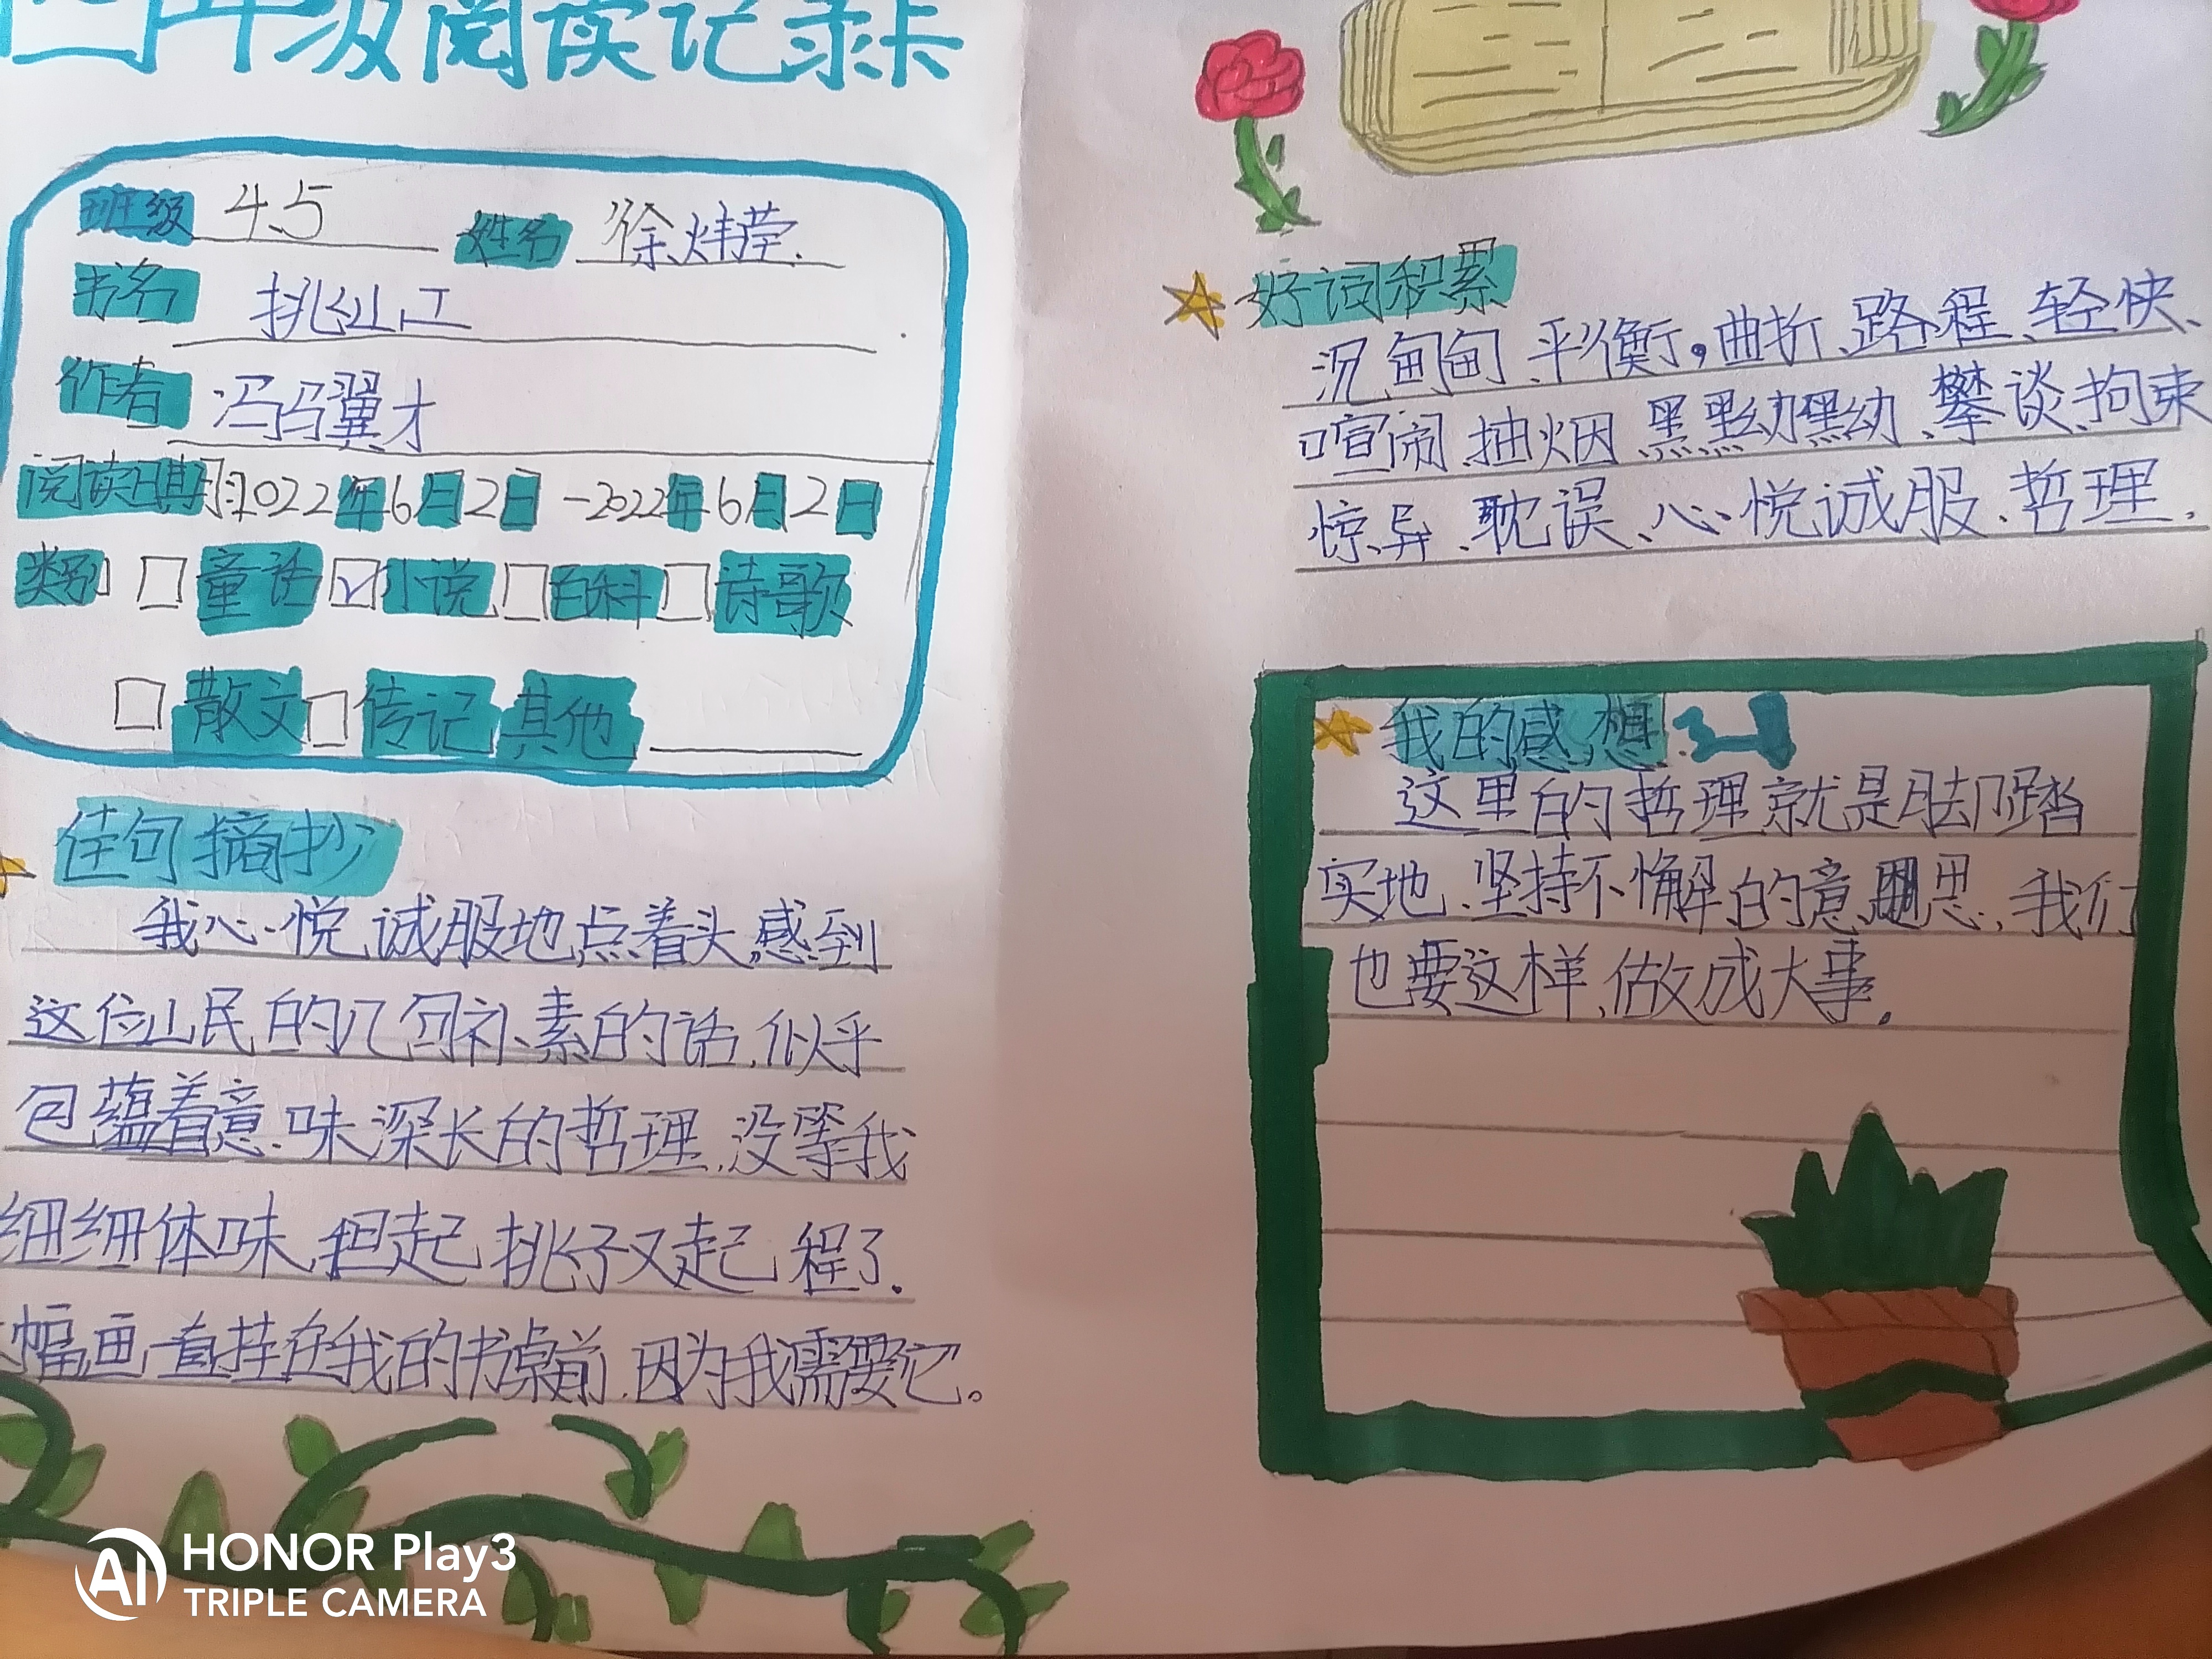 四年级阅读记录卡
班级 4.5 姓名 徐炜莹.
书名 挑山工
作者 冯骥才
阅读日期 2022年6月2日-2022年6月2日
类别 童话 小说 百科 诗歌
散文 传记 其他
佳句摘抄
我心悦诚服地点着头,感到
这位山民的几句朴素的话,似乎
包蕴着意味深长的哲理,没等我
细细体味,担起挑子又起程了.
幅画一直挂在我的书桌前,因为我需要它。
好词积累
沉甸甸、平衡,曲折、路程、轻快、
喧闹、抽烟、黑黝黝、攀谈、拘束
惊异、耽误、心悦诚服、哲理.
我的感想:
这里的哲理就是脚踏
实地、坚持不懈的意思,我们
也要这样,做成大事.
HONOR Play3
AI TRIPLE CAMERA